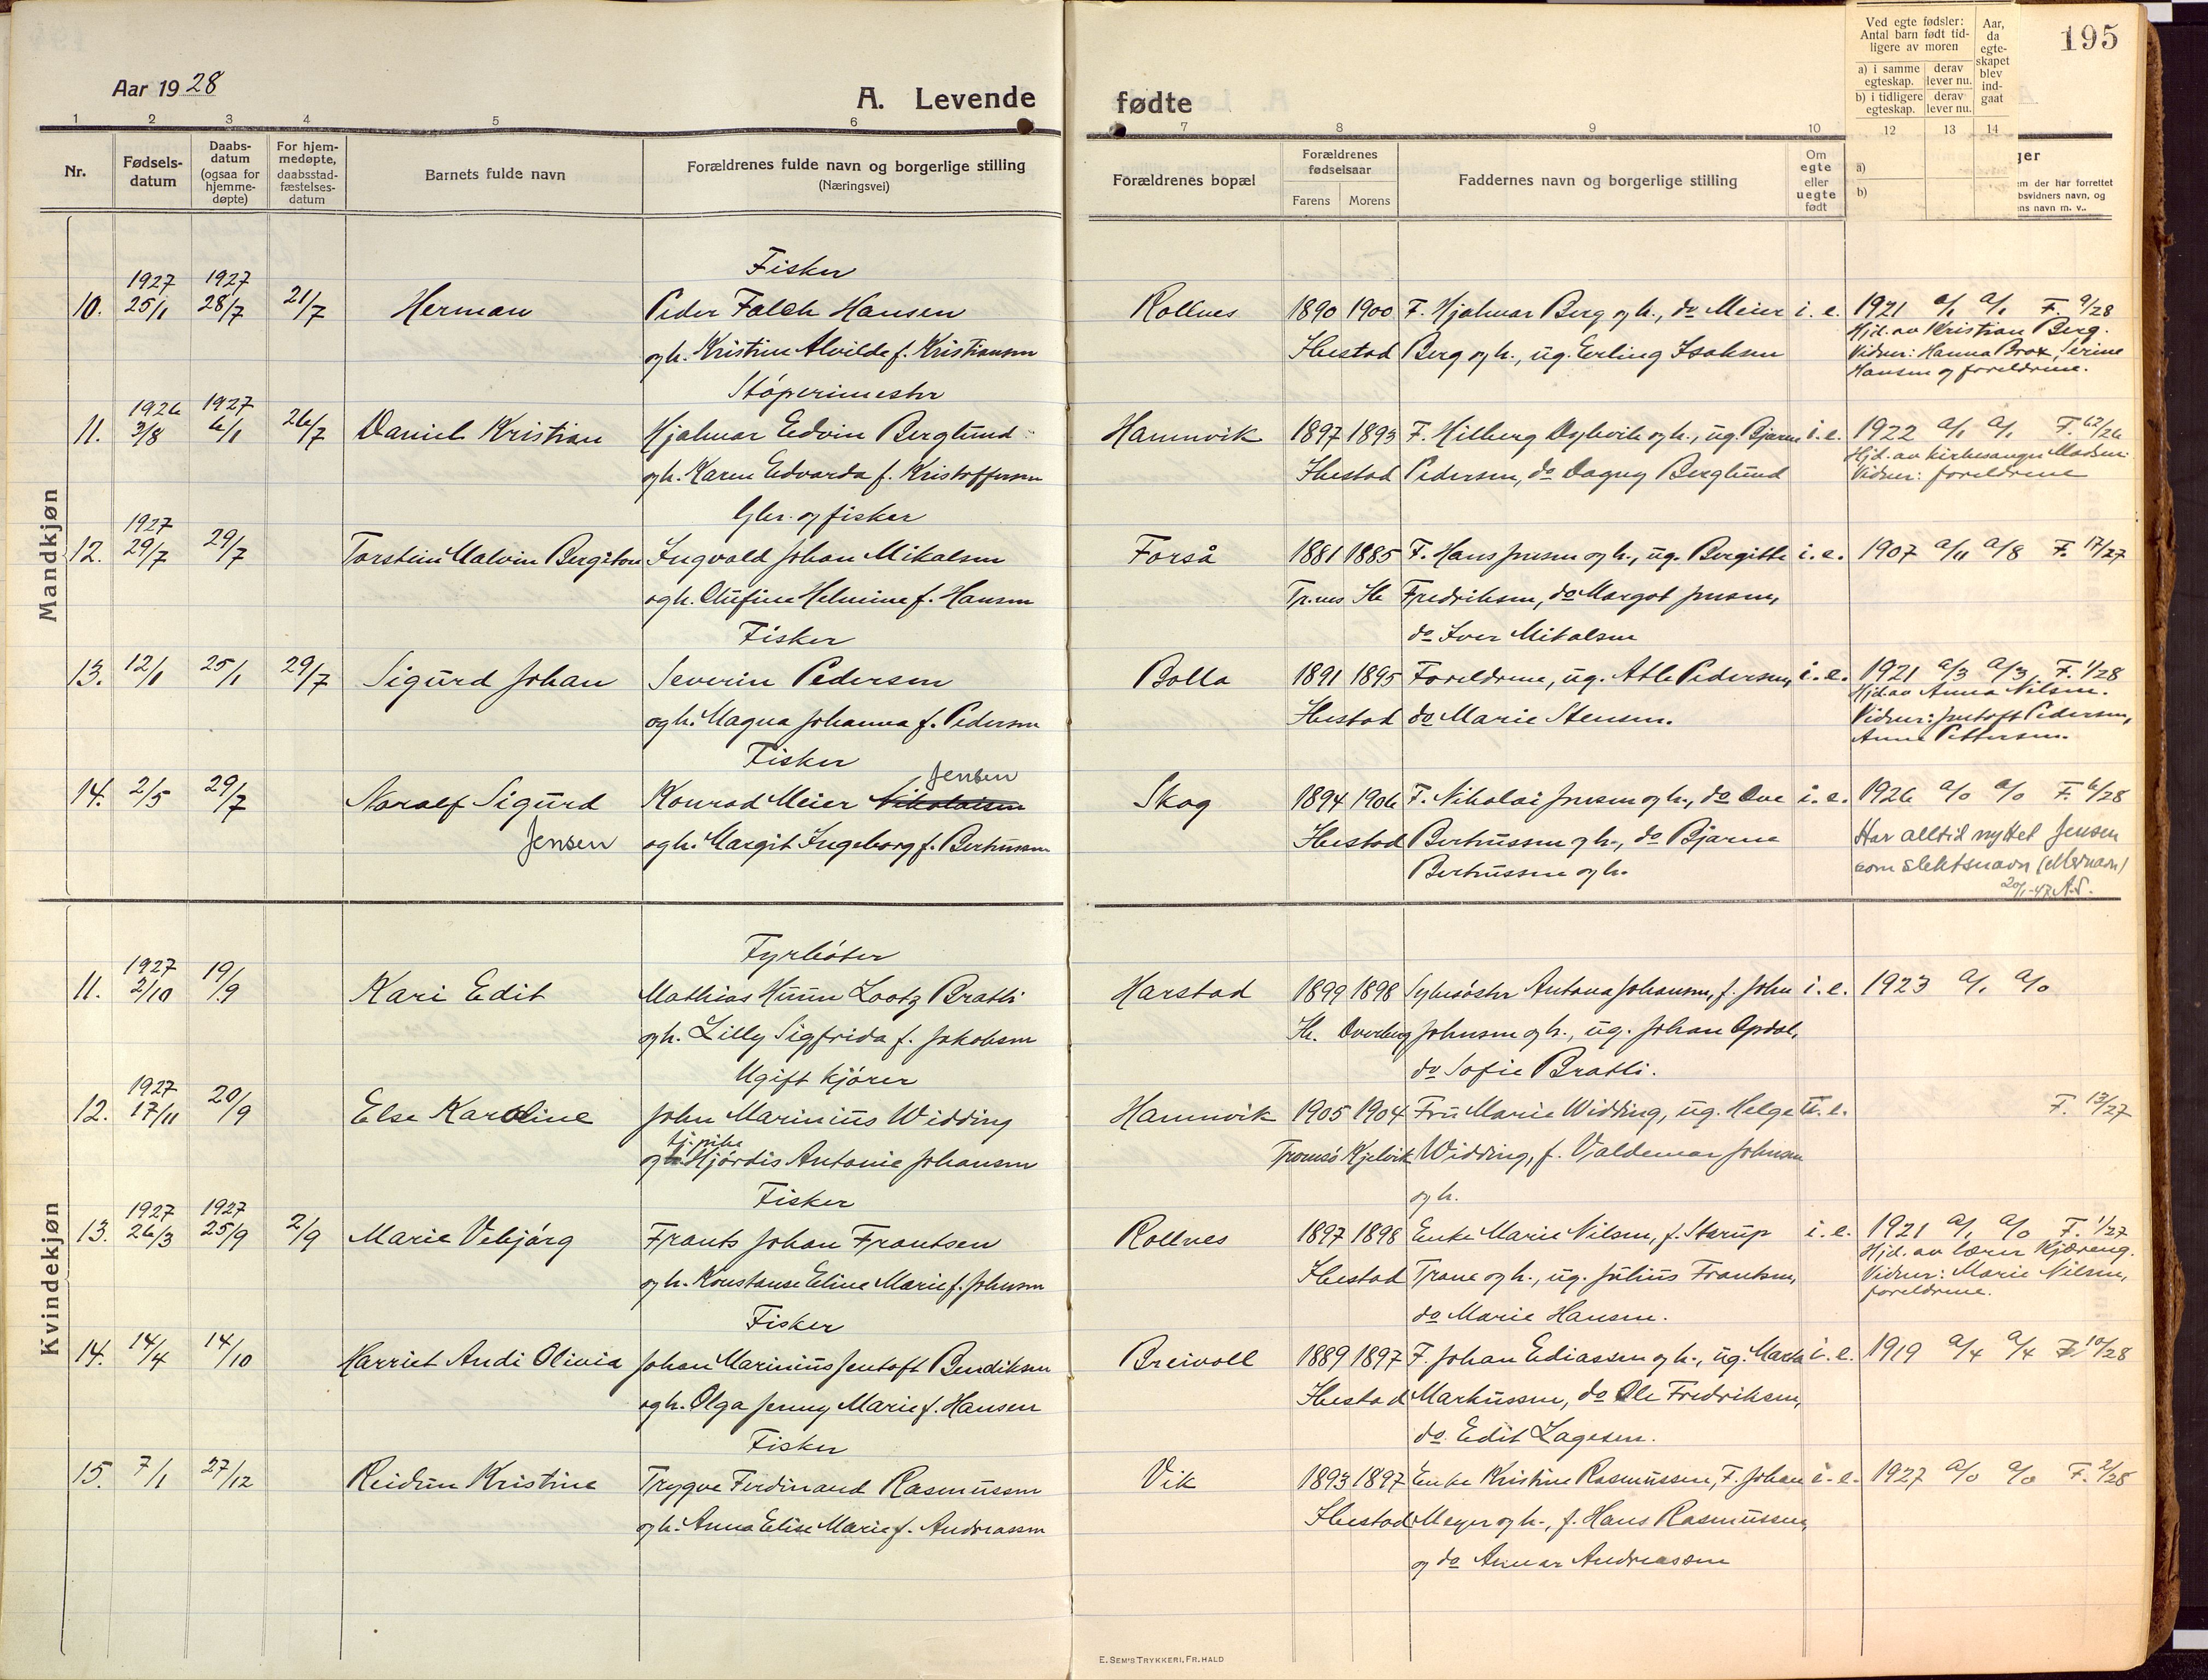 Aar 1928
A. Levende fødte
195
1 2 3 4 5 6 7 8 9 10 12 13 14
Nr.
Fødsels-
datum
Daabs-
datum
(ogsaa for
hjemme-
døpte)
For hjem-
medøpte,
daabsstad-
fæstelses-
datum
Barnets fulde navn
Forældrenes fulde navn og borgerlige stilling
(Næringsvei)
Forældrenes bopæl
Forældrenes
fødselsaar
Farens Morens
Faddernes navn og borgerlige stilling
Om
egte
eller
uegte
født
Ved egte fødsler:
Antal barn født tid-
ligere av moren
a) i samme egteskap. derav lever nu.
b) i tidligere egteskap. derav lever nu.
Aar,
da
egte-
skapet
blev
ind-
gaat
a)
b)
ger
m der har forrettet
bsvidners navn, og
ns navn m. v..
Mandkjøn
Fisker
1927 1927
10. 25/1 28/7 21/7 Herman Peder Falck Hansen Rollnes 1890 1900 F. Hjalmar Berg og h., do Meier i. e. 1921 a/1 a/1 F. 9/28
og h. Kristine Alvilde f. Kristiansen Ibestad Berg og h., ug. Erling Isaksen
Hjd. av Kristian Berg.
Vidner: Hanna Brox, Serine
Hansen og foreldrene.
Støperimester
1926 1927
11. 3/8 6/1 26/7 Daniel Kristian Hjalmar Edvin Berglund Hamnvik 1897 1893 F. Hilberg Dyhvik og h., ug. Bjarne i. e. 1922 a/1 a/1 F. 62/26
og h. Karen Edvarda f. Kristoffersen Ibestad Pedersen, do Dagny Berglund
Hjd. av kirkesanger Madsen.
Vidner: foreldrene
Gbr. og fisker
1927
12. 29/7 29/7 Torstein Malvin Bergiton Ingvald Johan Mikalsen Forså 1881 1885 F. Hans Jensen og h., ug. Bergitte i. e. 1907 a/11 a/8 F. 17/27
og h. Olufine Helmine f. Hansen Tr.nes Ib Fredriksen, do Margot Jensen,
do Iver Mikalsen
Fisker
13. 12/1 25/1 29/7 Sigurd Johan Severin Pedersen Bolla 1891 1895 Foreldrene, ug. Atle Pedersen, i. e. 1921 a/3 a/3 F. 1/28
og h. Magna Johanna f. Pedersen Ibestad do Marie Stensen.
Hjd. av Anna Nilsen.
Vidner: Jentoft Pedersen,
Anna Pettersen.
Fisker
Jensen
14. 2/5 29/7 Noralf Sigurd Konrad Meier Nikolaisen Skog 1894 1906 F. Nikolai Jensen og h., do Ove i. e. 1926 a/0 a/0 F. 6/28
Jensen og h. Margit Ingeborg f. Berhussen Ibestad Berhussen og h., do Bjarne
Berhussen og h.
Har alltid nyttet Jensen
som slektsnavn (etternavn)
20/1-47 A.S.
Kvindekjøn
Fyrbøter
1927
11. 2/10 19/9 Kari Edit Mathias Hunn Lootz Bratli Harstad 1899 1898 Sykesøster Antona Johansen, f. John i. e. 1923 a/1 a/0
og h. Lilly Sigfrida f. Jakobsen Ib. Overberg Johnsen og h., ug. Johan Opdal,
do Sofie Bratli.
Ugift kjører
1927
12. 17/11 20/9 Else Karoline John Marinius Widding Hamnvik 1905 1904 Fru Marie Widding, ug. Helge u. e. F. 13/27
tj. pike
og Hjørdis Antonie Johansen Tromsø Kjelvik Widding, f. Valdemar Johnsen
og h.
Fisker
1927 1927
13. 26/3 25/9 2/9 Marie Vebjørg Frants Johan Frantsen Rollnes 1897 1898 Enke Marie Nilsen, f. Sterup i. e. 1921 a/1 a/0 F. 1/27
og h. Konstanse Eline Marie f. Johnsen Ibestad Trane og h., ug. Julius Frantsen,
do Marie Hansen.
Hjd. av lærer Kjæreng.
Vidner: Marie Nilsen,
foreldrene.
Fisker
14. 14/4 14/10 Harriet Andi Olivia Johan Marinius Jentoft Bendiksen Breivoll 1889 1897 F. Johan Ediassen og h., ug. Marta i. e. 1919 a/4 a/4 F. 10/28
og h. Olga Jenny Marie f. Hansen Ibestad Markussen, do Ole Fredriksen,
do Edit Lagesen.
Fisker
15. 7/1 27/12 Reidun Kristine Trygve Ferdinand Rasmussen Vik 1893 1897 Enke Kristine Rasmussen, F. Johan i. e. 1927 a/0 a/0 F. 2/28
og h. Anna Elise Marie f. Andreassen Ibestad Meyer og h., f. Hans Rasmussen,
og do Annar Andreassen
E. SEM'S TRYKKERI, FR.HALD